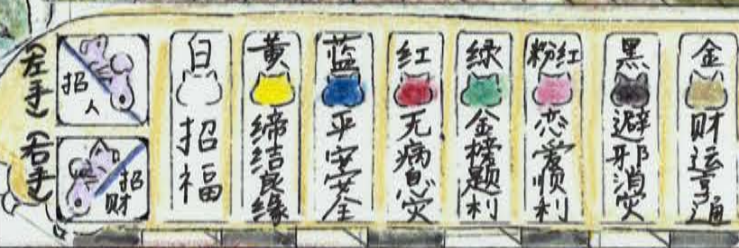 (左手)
招人
(右手)
招财
白 招福
黄 缔结良缘
蓝 平安安全
红 无病息灾
绿 金榜题利
粉红 恋爱顺利
黑 避邪消灾
金 财运亨通